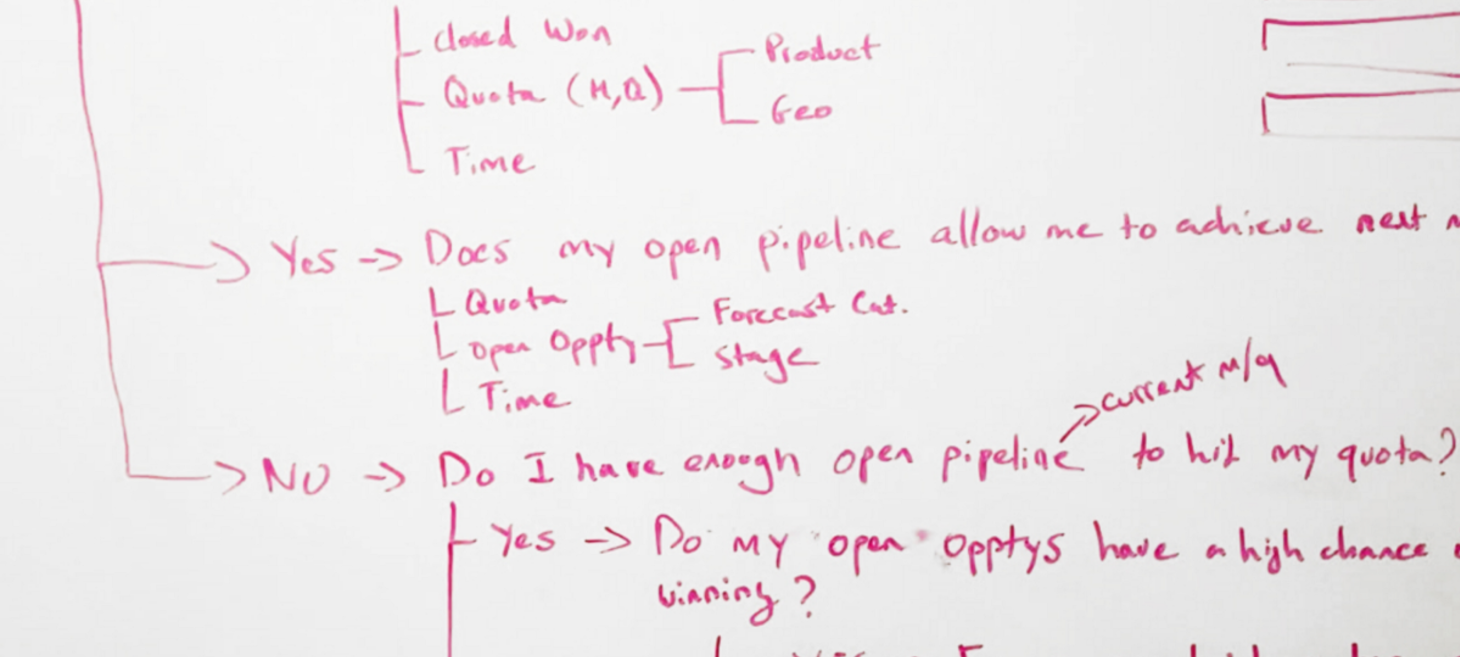 Closed Won
Quota (M,Q)
Product
Geo
Time
Yes -> Does my open pipeline allow me to achieve next
Quota
Open Oppty
Forecast Cat.
Stage
Time
current m/q
NO -> Do I have enough open pipeline to hit my quota?
Yes -> Do my open opptys have a high chance
winning?